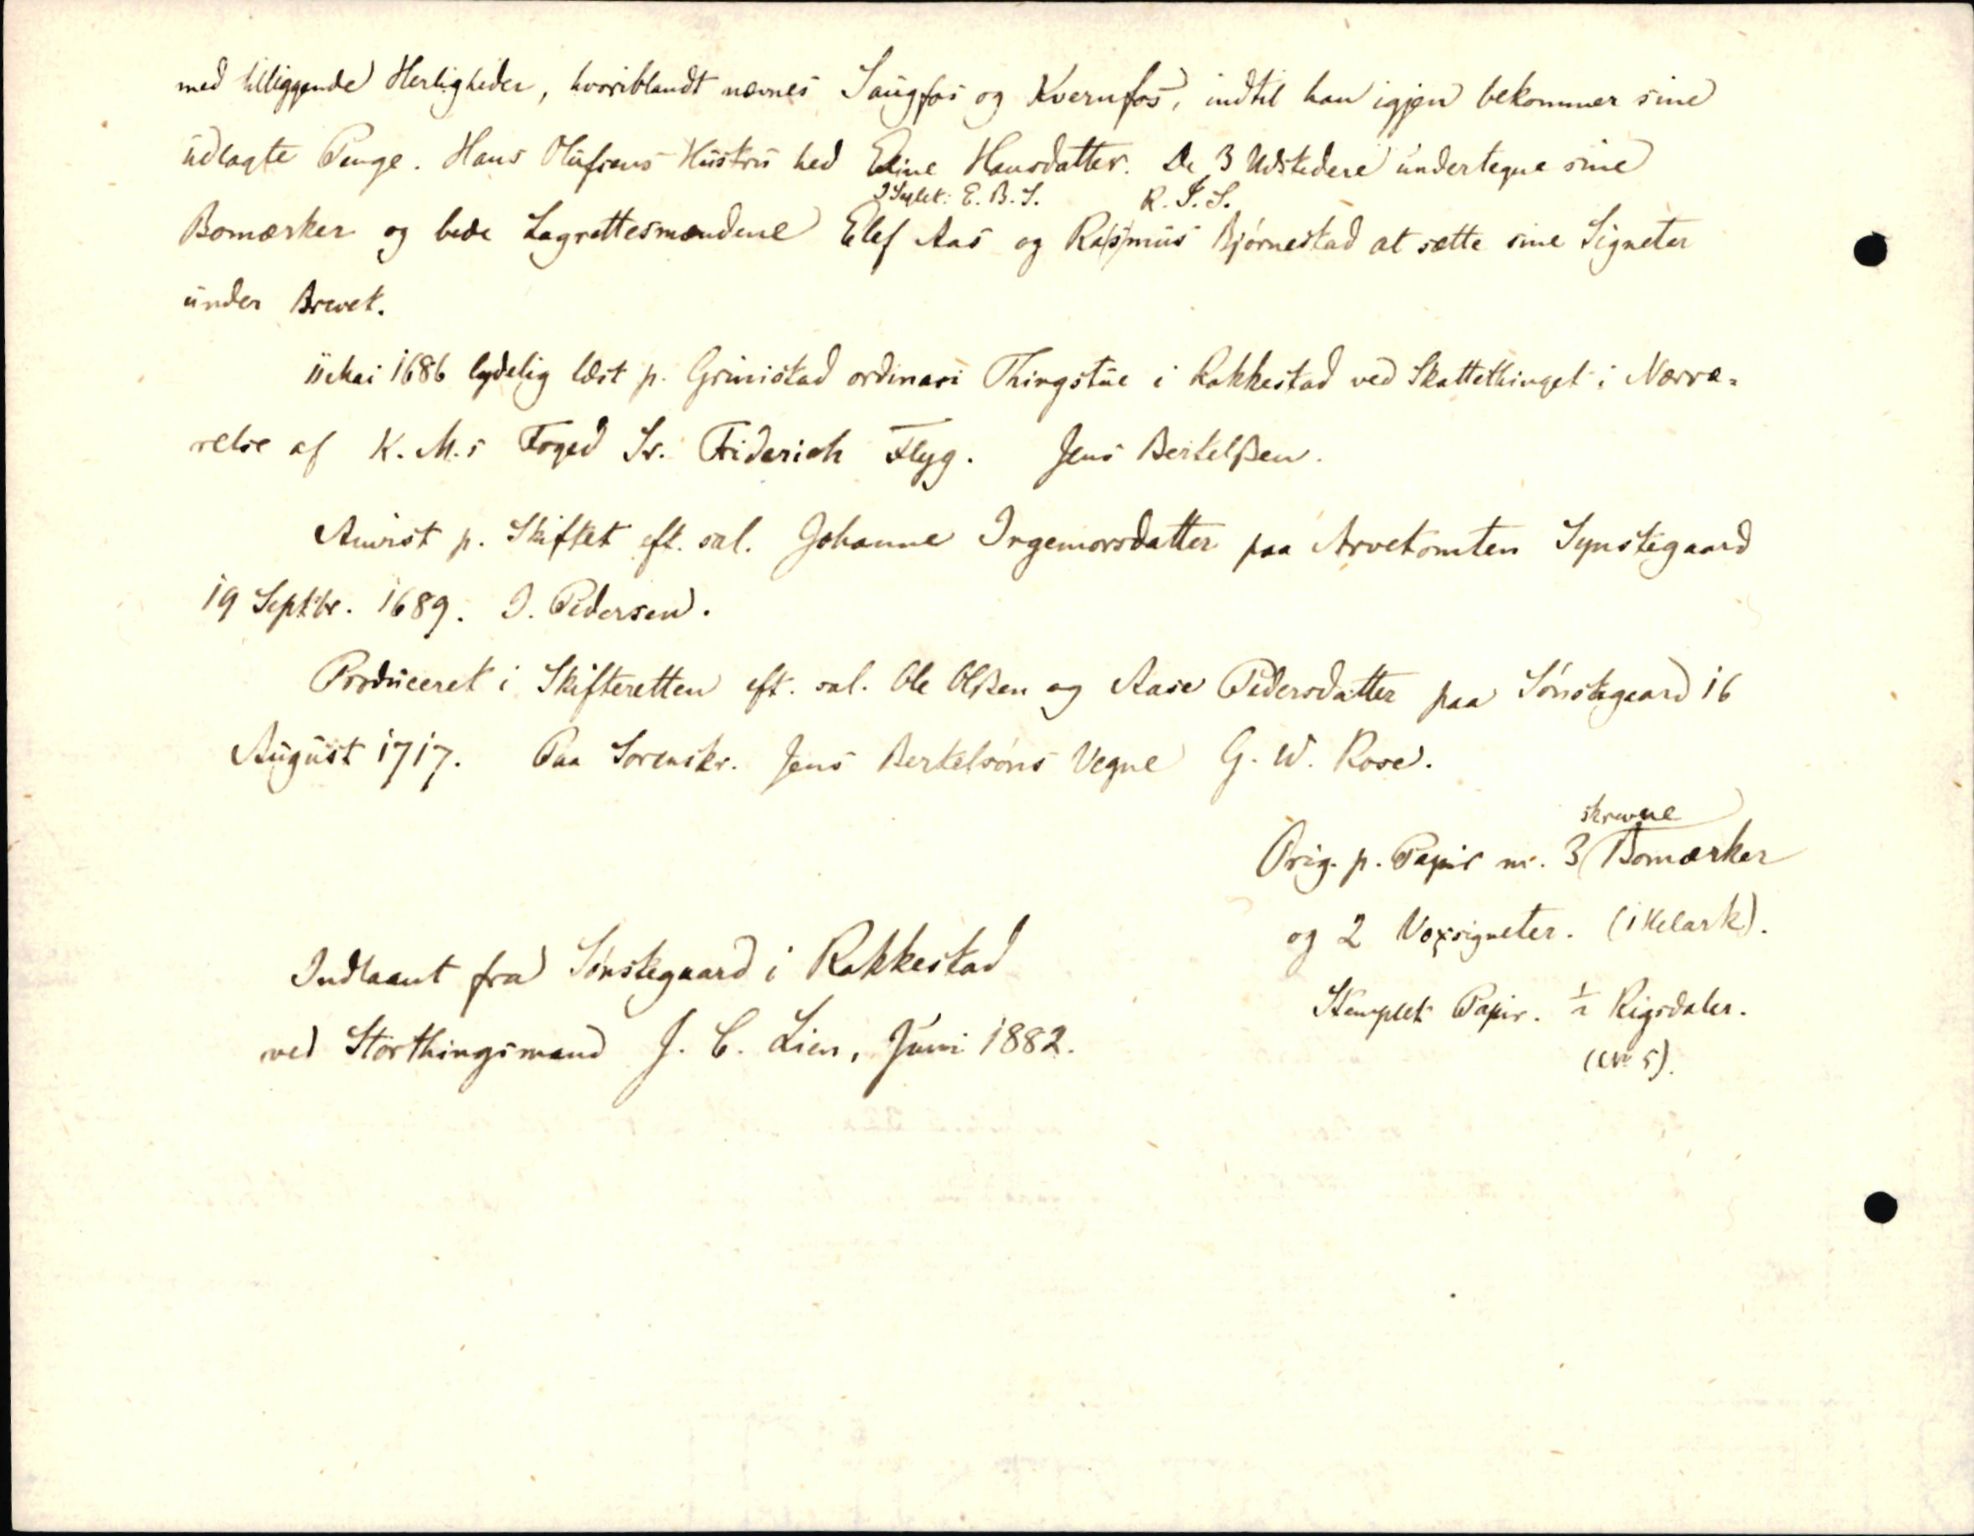 med tilliggende Herligheder, hvoriblandt nævnes Saugfos og Kvernfos, indtil han igjen bekommer sine
udlagte Penge. Hans Olufsens Hustru hed Eline Hansdatter. De 3 Udstedere undertegne sine
I Seglet: E. B. S. R. I. S.
Bomærker og bede Lagrettesmændene Elef Aas og Rasmus Bjørnestad at sætte sine Signeter
under Brevet.
11 Mai 1686 lydelig læst p. Grimstad ordinari Thingstue i Rakkestad ved Skattethinget i Nærvæ-
relse af K. M.s Foged Sr. Friderich Flyg. Jens Bertelßen.
Anvist p. Skiftet eft. sal. Johanne Ingemorsdatter paa Arvetomten Synstegaard
19 Septbr. 1689. J. Pedersen.
Produceret i Skifteretten eft. sal. Ole Olßen og Aase Pedersdatter paa Sønstegaard 16
August 1717. Paa Sorenskr. Jens Bertelsøns Vegne G. W. Rose.
skrevne
Orig. p. Papir m. 3 Bomærker
og 2 Voxsigneter. (1 Helark).
Stemplet Papir. ½ Rigsdaler.
(No 5).
Indlaant fra Sønstegaard i Rakkestad
ved Storthingsmand J. C. Lien, Juni 1882.